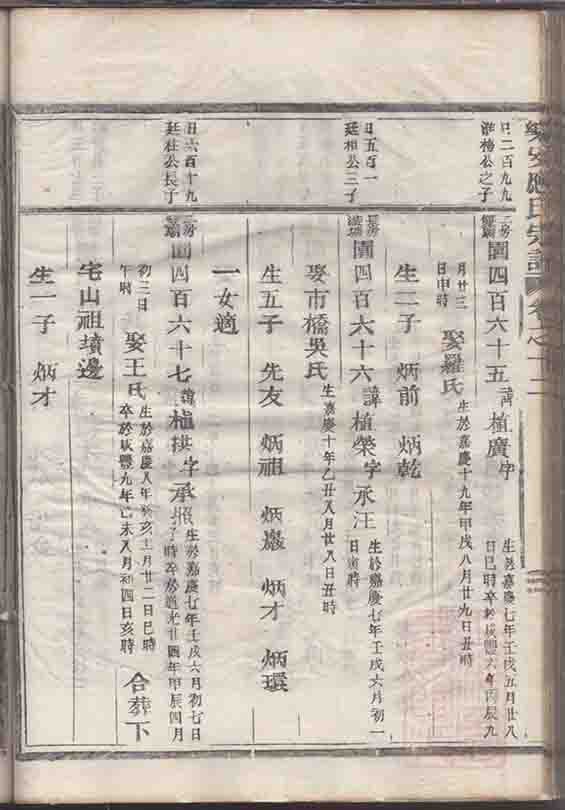 應氏宗譜 卷之十二
日二百九九
淮楊公之子
二房
圍四百六十五 諱 植廣 字
生於嘉慶七年壬戌五月廿八
日巳時卒於咸豐六年丙辰九
月廿三
日申時
娶羅氏
生於嘉慶十九年甲戌八月廿九日丑時
生二子 炳前 炳乾
日五百一
廷相公三子
長房
圍四百六十六 諱 植榮 字 承汪
生於嘉慶七年壬戌六月初一
日寅時
娶市橋吳氏
生嘉慶十年乙丑八月廿八日丑時
生五子 先友 炳祖 炳巖 炳才 炳環
一女適
日六百十九
廷柱公長子
二房
圍四百六十七 諱 植拱 字 承照
生於嘉慶七年壬戌六月初七日
子時卒於道光廿四年甲辰四月
初三日
午時
娶王氏
生於嘉慶八年癸亥十二月廿二日巳時
卒於咸豐九年己未八月初四日亥時
合葬下
宅山祖墳邊
生一子 炳才